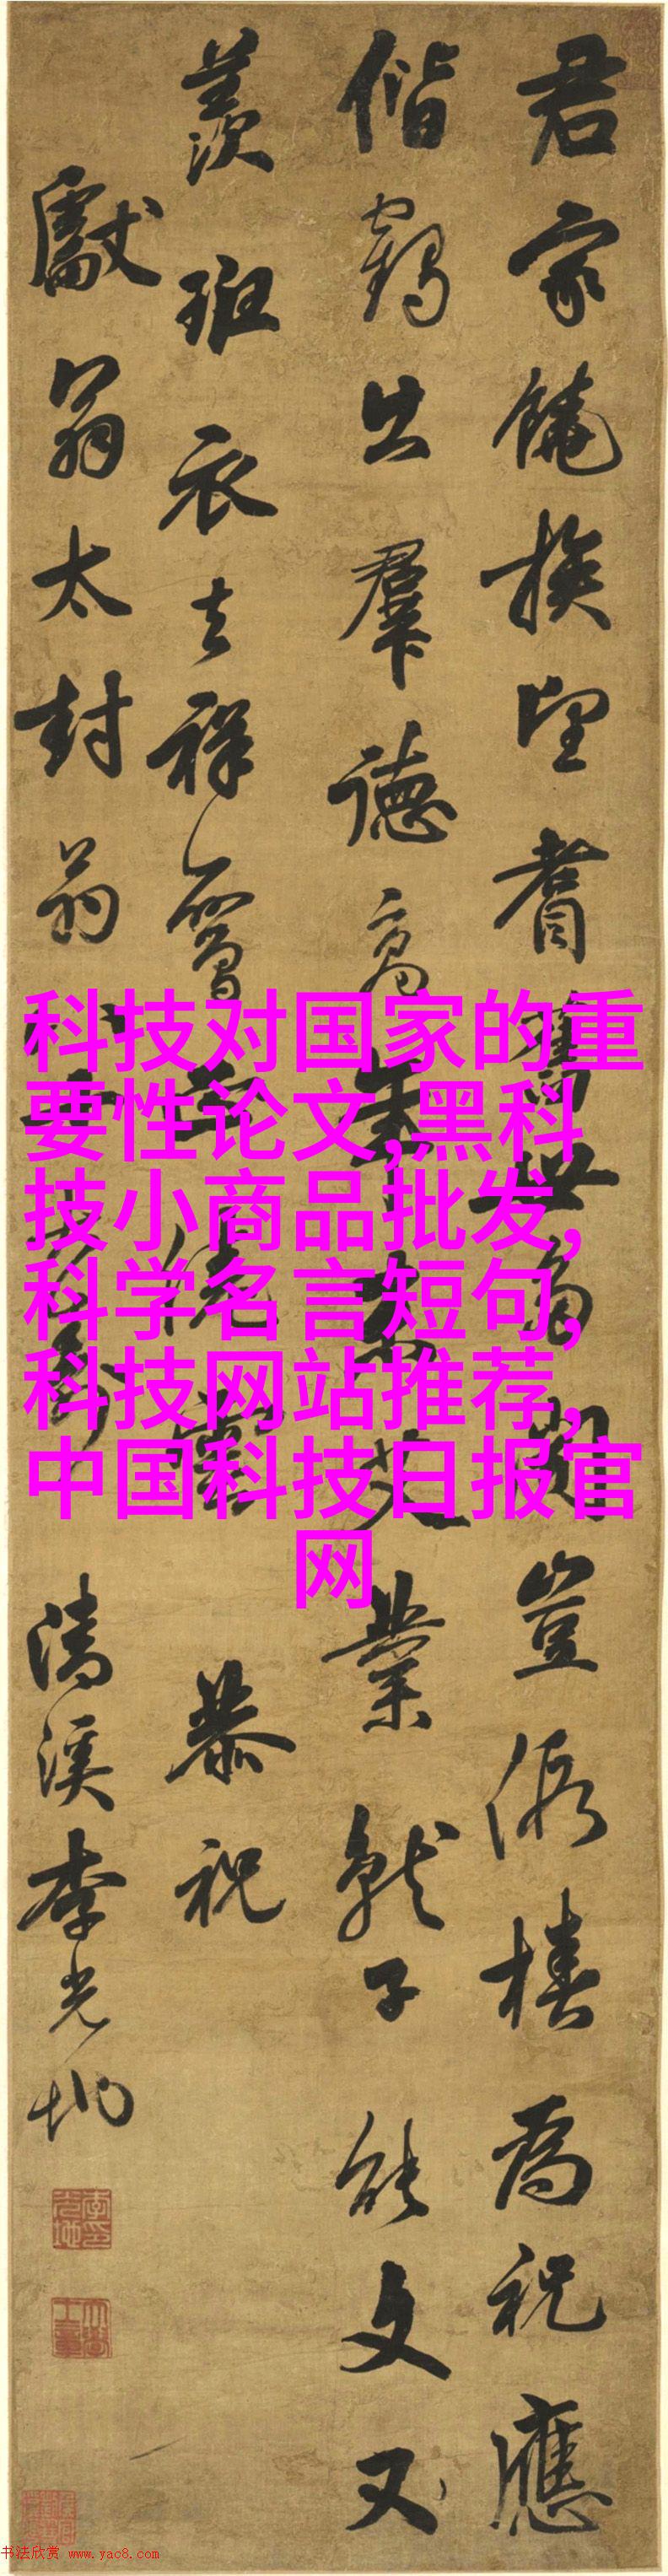 君家饒族望耆舊世豈假椿為祝應
偕鶴出羣德高業就子能文又
羨班衣祥鸞恭祝
獻翁太封翁清溪李光地
科技对国家的重
要性论文,黑科
技小商品批发,
科学名言短句,
科技网站推荐,
中国科技日报官
网
书法欣赏 www.yac8.com